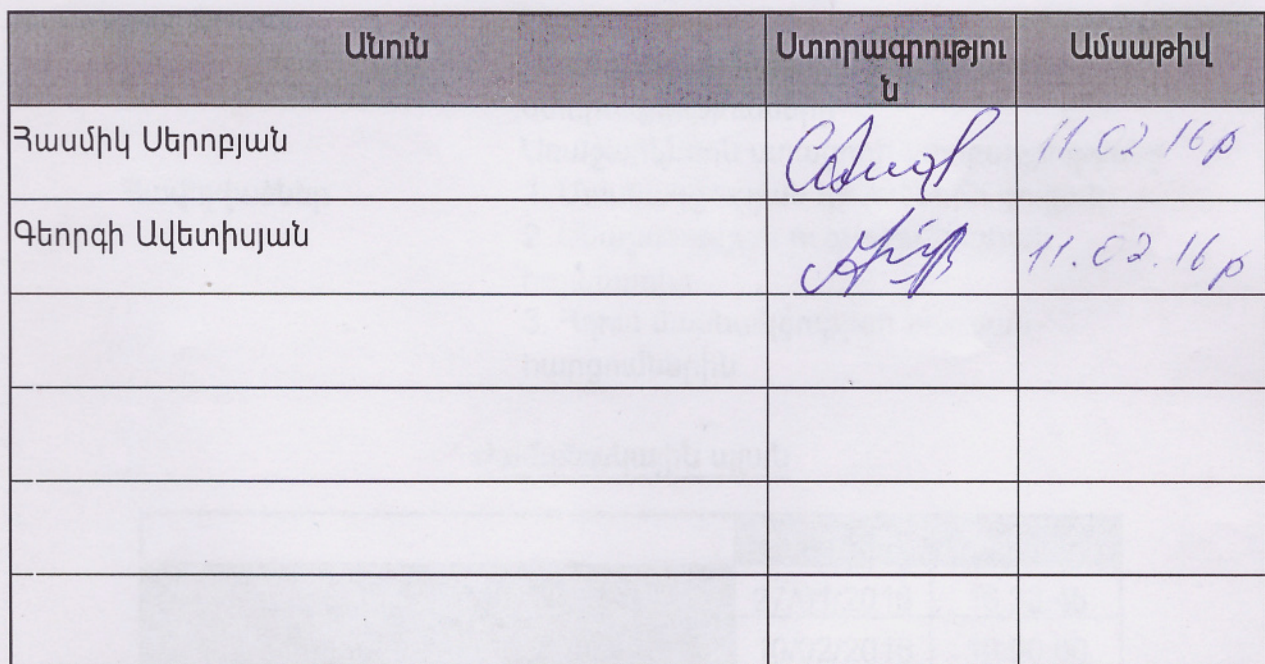 Անուն Ստորագրությու Ամսաթիվ
ն
Հասմիկ Սերոբյան 11.02.16թ
Գեորգի Ավետիսյան 11.02.16թ